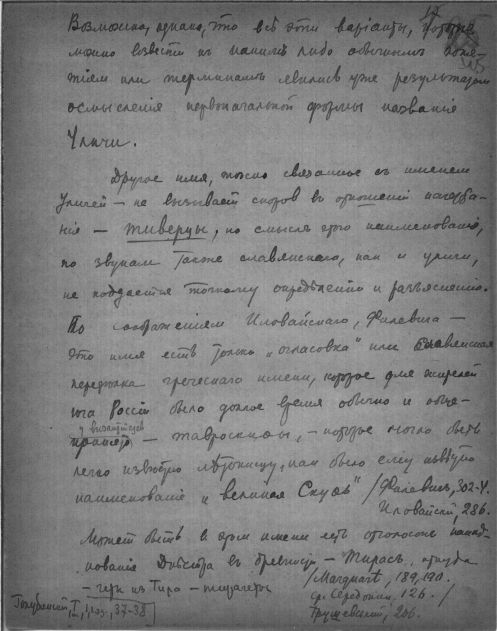 Возможно, однако, что всѣ эти варіанты, которые
можно возвести къ какимъ либо обычнымъ поня-
тіямъ или терминамъ явились уже результатомъ
осмысленія первоначальной формы названія
Уличи.
Другое имя, тѣсно связанное съ именемъ
Уличей – не вызываетъ споровъ въ отношеніи начерта-
нія – тиверцы, но смыслъ этого наименованія,
по звукамъ также славянскаго, как и уличи,
не поддается точному опредѣленію и разъясненію.
По соображеніямъ Иловайскаго, Филевича –
это имя есть только „огласовка" или славянская
передѣлка греческаго имени, которое для жителей
юга Россіи было долгое время обычно и
у византійцевъ
– тавроскиѳы, – которое могло быть
легко извѣстно лѣтописцу, какъ было ему извѣстно
наименованіе и „великая Скуѳь" /Филевичъ, 302-4.
Иловайскій, 286.
Можетъ быть въ этом имени есть отголосокъ наиме-
нованія Днѣстра въ древности – Тирасъ, откуда
– гети из Тира – тирагеты
/Marquart, 189, 190.
Ср. Середонин, 126. /
Грушевский, 206.
Голубинский, I, 37-38